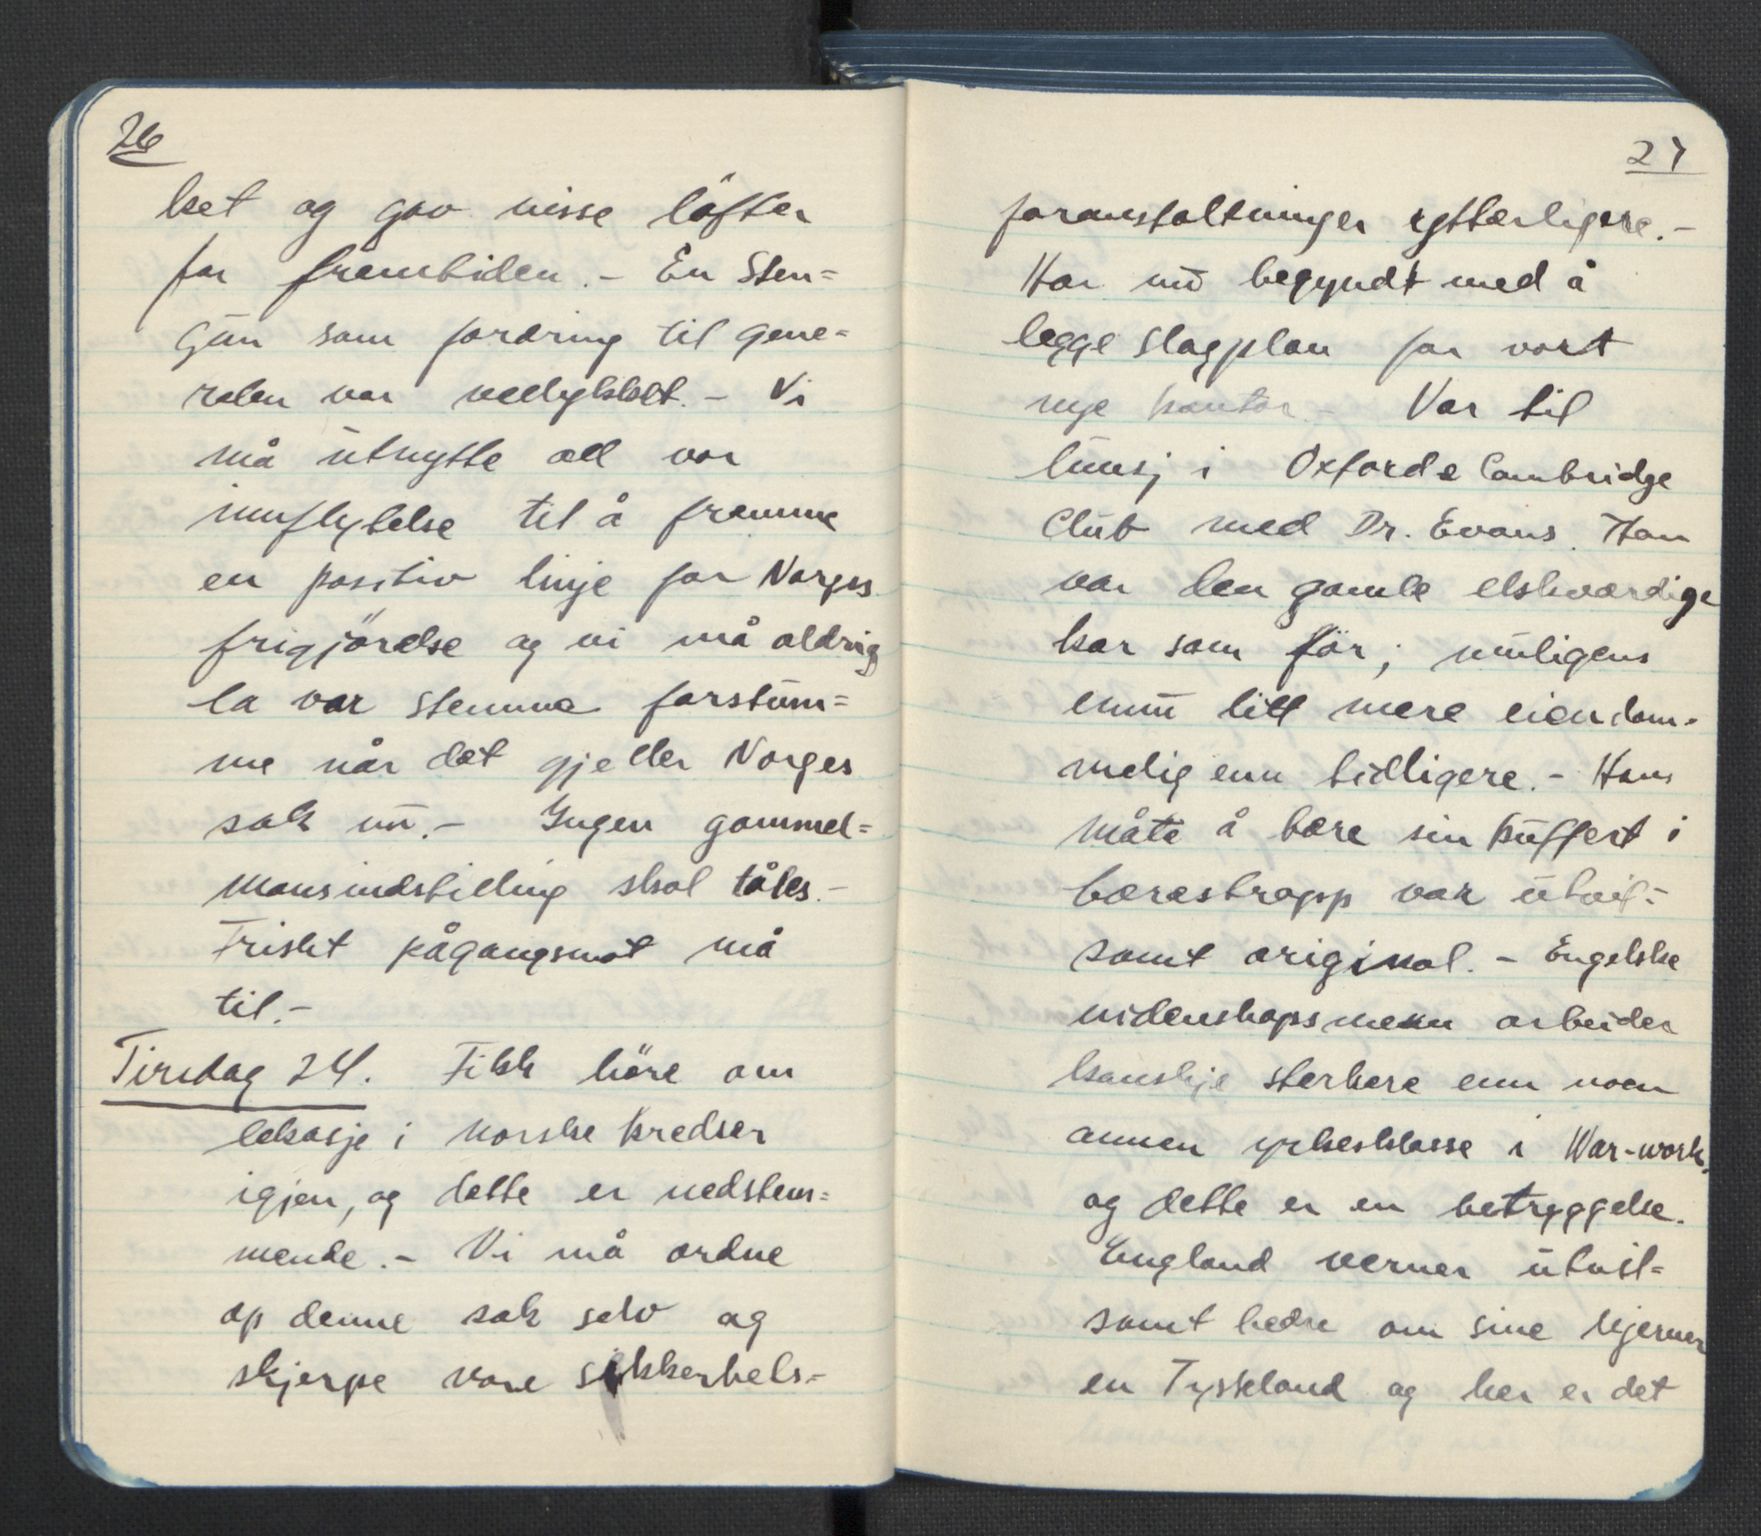 26
ket og gav visse löfter
for fremtiden. - En Sten=
gun som fordring til gene=
ralen var vellykket. - Vi
må utnytte all vor
innflytelse til å fremme
en positiv linje for Norges
frigjörelse og vi må aldrig
la vor stemme forstum=
me når det gjeller Norges
sak nu. - Ingen gammel=
mansindstilling skal tåles. -
Friskt pågangsmot må
til. -
Tirsdag 24. Fikk höre om
lekasje i norske kredser
igjen, og dette er nedstem=
mende. - Vi må ordne
op denne sak selv og
skjerpe vore sikkerhets=
27
foranstaltninger ytterligere. -
Har nu begyndt med å
legge slagplan for vort
nye kontor - Var til
lunsj i Oxford & Cambridge
Club med Dr. Evans. Han
var den gamle elskværdige
kar som för; muligens
ennu litt mere eiendom-
melig enn tidligere. - Hans
måte å bære sin kuffert i
bærestropp var utvil=
somt original. - Engelske
videnskapsmenn arbeider
kanskje sterkere enn noen
annen yrkesklasse i War-work,
og dette er en betryggelse.
England verner utvil=
somt bedre om sine hjerner
en Tyskland og her er det